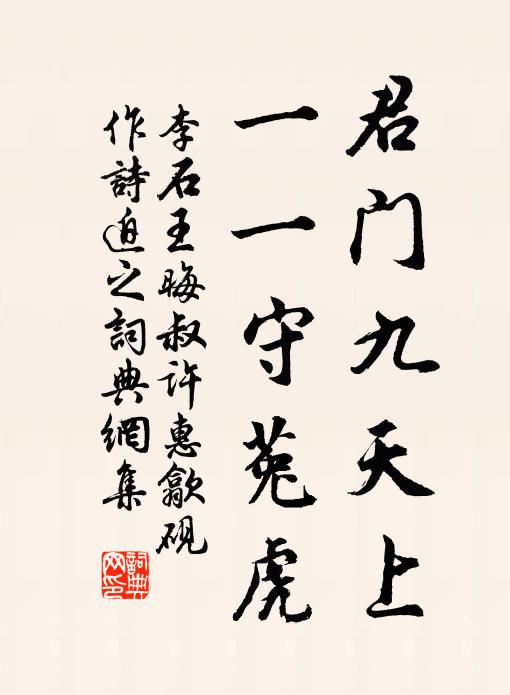 君门九天上
一一守菟虎
李石王晦叔许惠歙砚
作詩迫之詞典網集
詞典网印